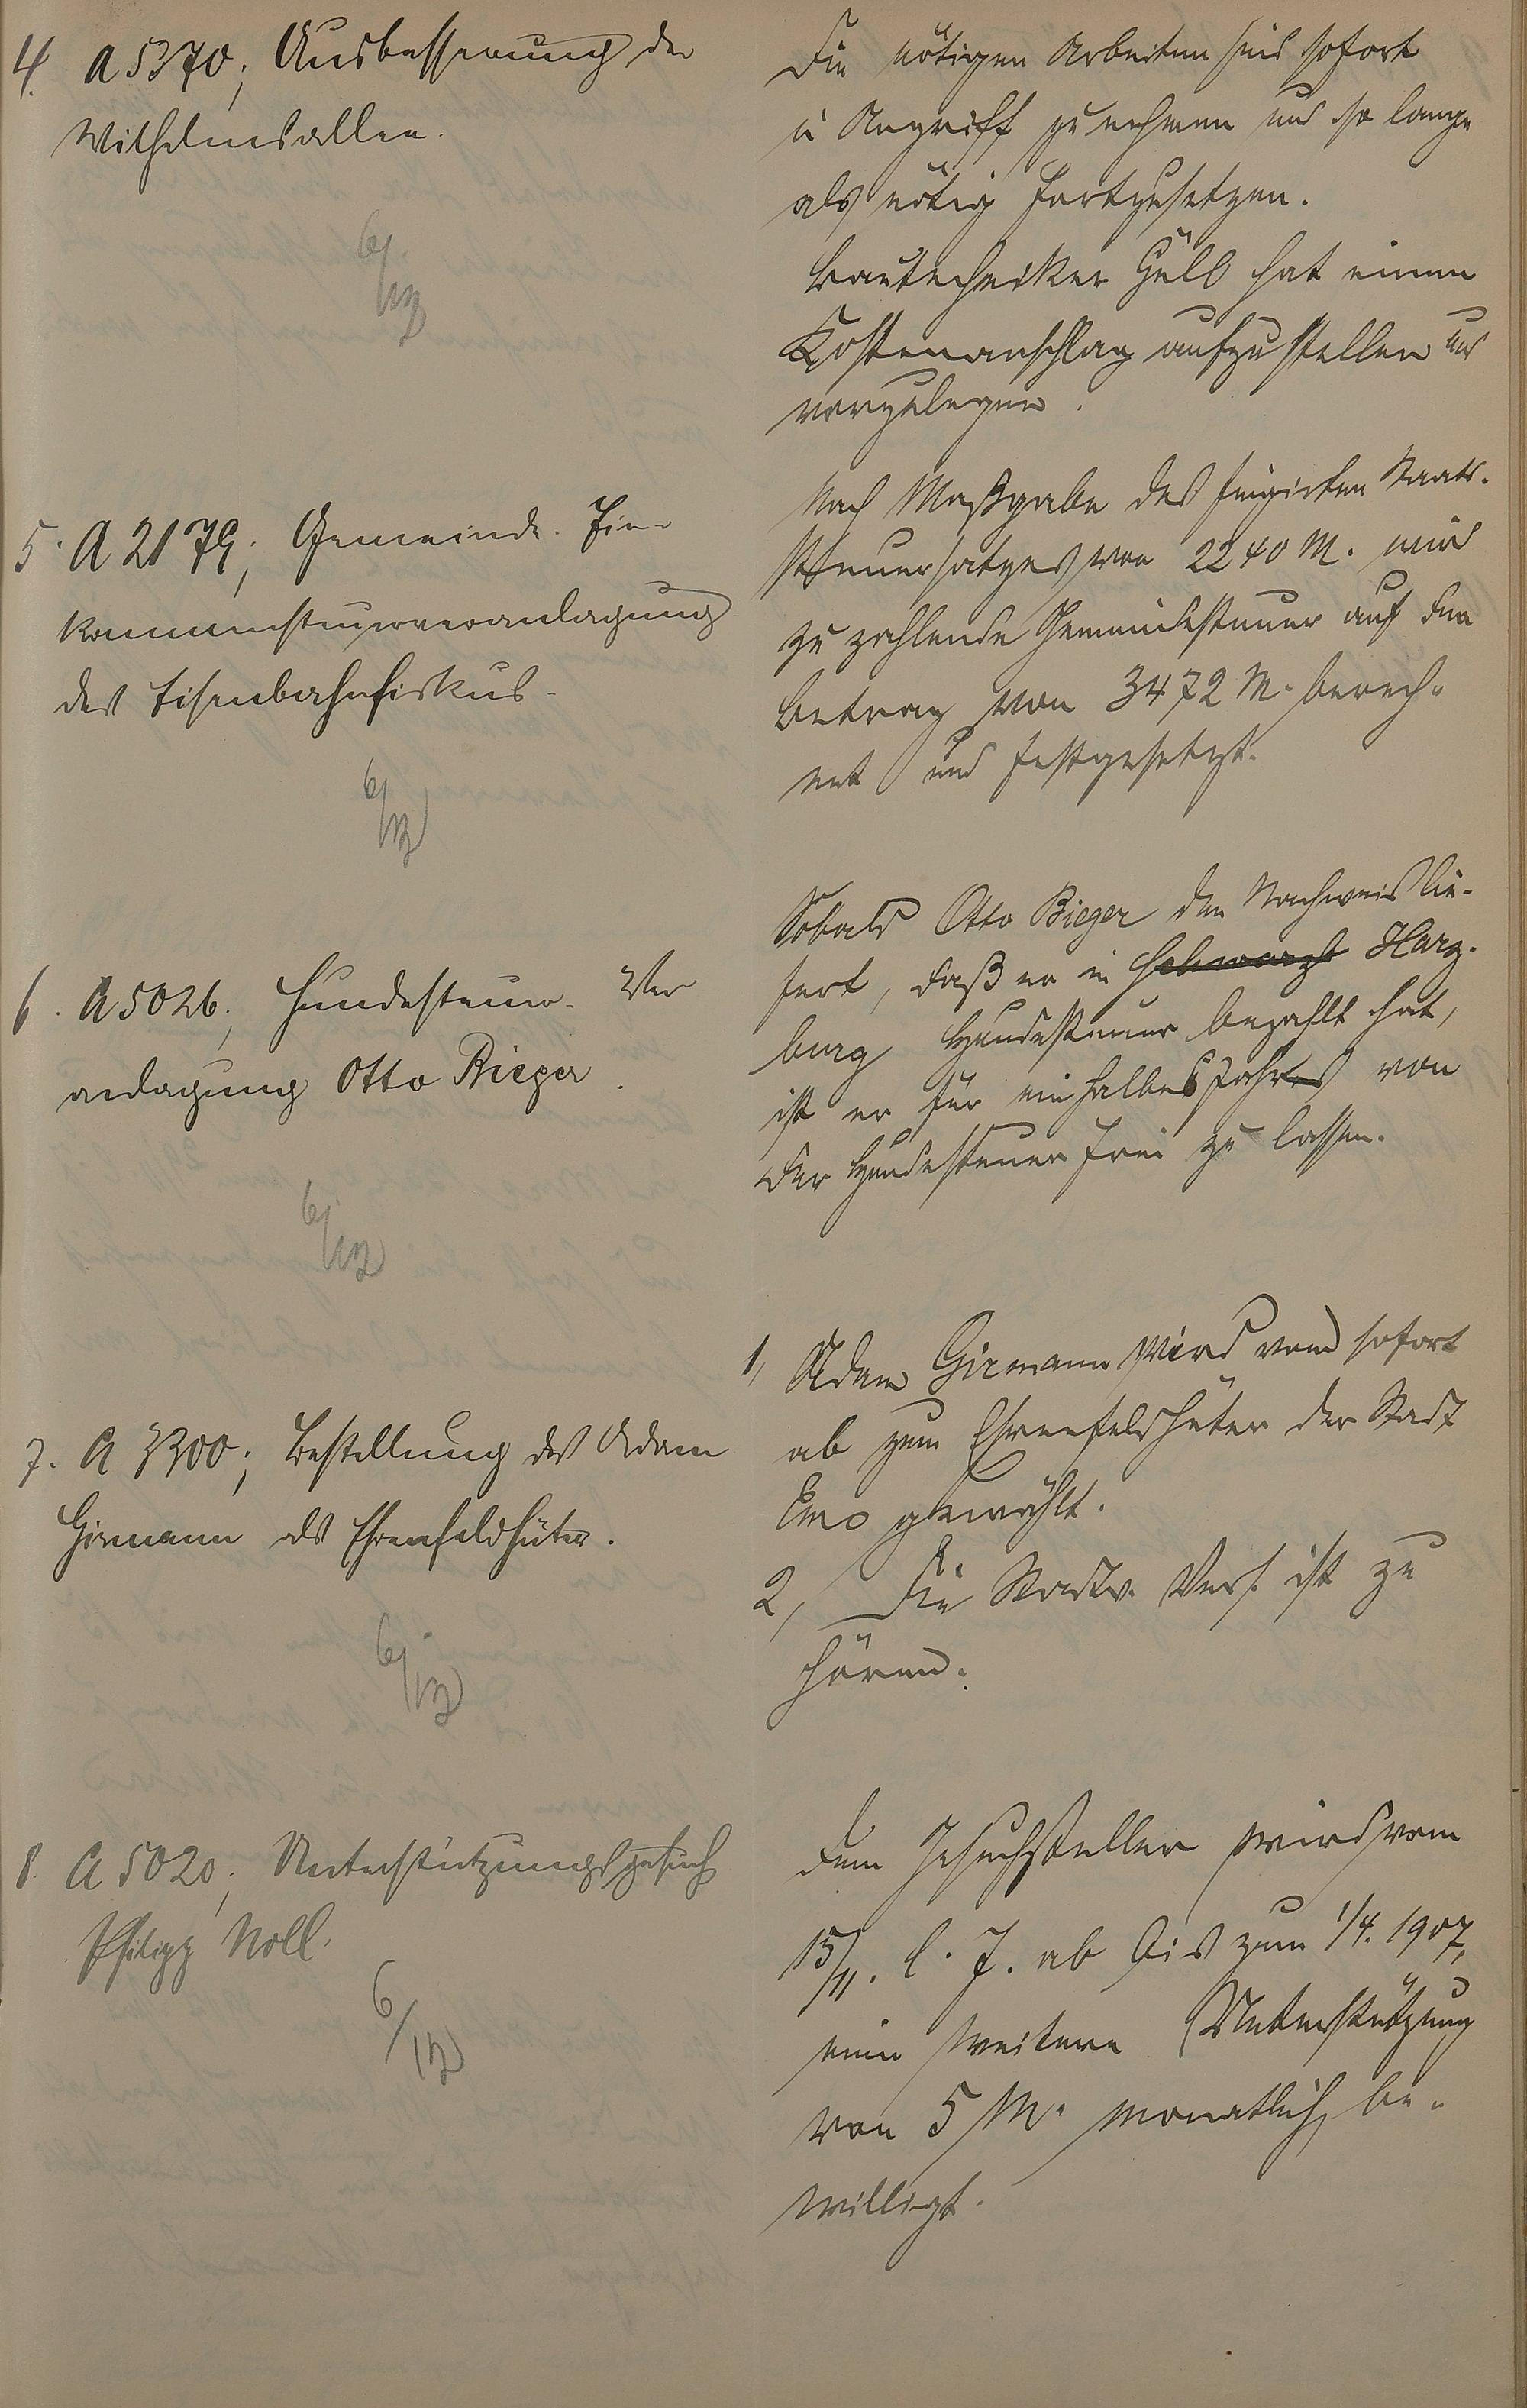 4. A 5370; Ausbesserung der
Wilhelmsallee.
Die nötigen Arbeiten sind sofort
in Angriff zu nehmen und so lange
als nötig fortzusetzen.
Bautechniker Güll hat einen
Kostenanschlag aufzustellen und
vorzulegen.
5. A 2179; Gemeinde-Ein-
kommensteuerveranlagung
des Eisenbahnfiskus.
Nach Maßgabe des fingirten Staats-
steuersatzes von 2240 M. wird
zu zahlende Gemeindesteuer auf den
Betrag von 3472 M. berech-
net und festgesetzt.
6. A 5026; Hundesteuer-Ver
anlagung Otto Bieger.
Sobald Otto Bieger den Nachweis lie-
fert, daß er in Schwarzb Harz-
burg Hundesteuer bezahlt hat,
ist er für ein halbes Jahres von
der Hundesteuer frei zu lassen.
7. A 3300; Bestellung des Adam
Girmann als Ehrenfeldhüter.
1, Adam Girmann wird von sofort
ab zum Ehrenfeldhüter der Stadt
Ems gewählt.
2, Die Stadtv. Vers. ist zu
hören.
8. A 5020; Unterstützungsgesuch
Philipp Noll.
Dem Gesuchsteller wird vom
15/11. l. J. ab bis zum 1/4. 1907,
eine weitere Unterstützung
von 5 M. monatlich be-
willigt.